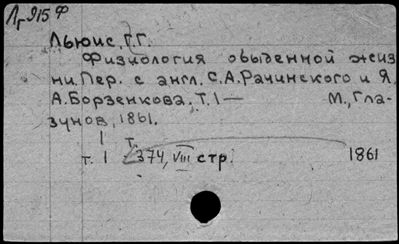 Лг915 Ф
Льюис, Г.Г.
Физиология обыденной жиз
ни. Пер. с англ. С.А. Рачинского и Я.
А. Борзенкова. Т. 1 — М., Гла-
зунов, 1861.
1 т.
т. 1 374, VIII стр. 1861